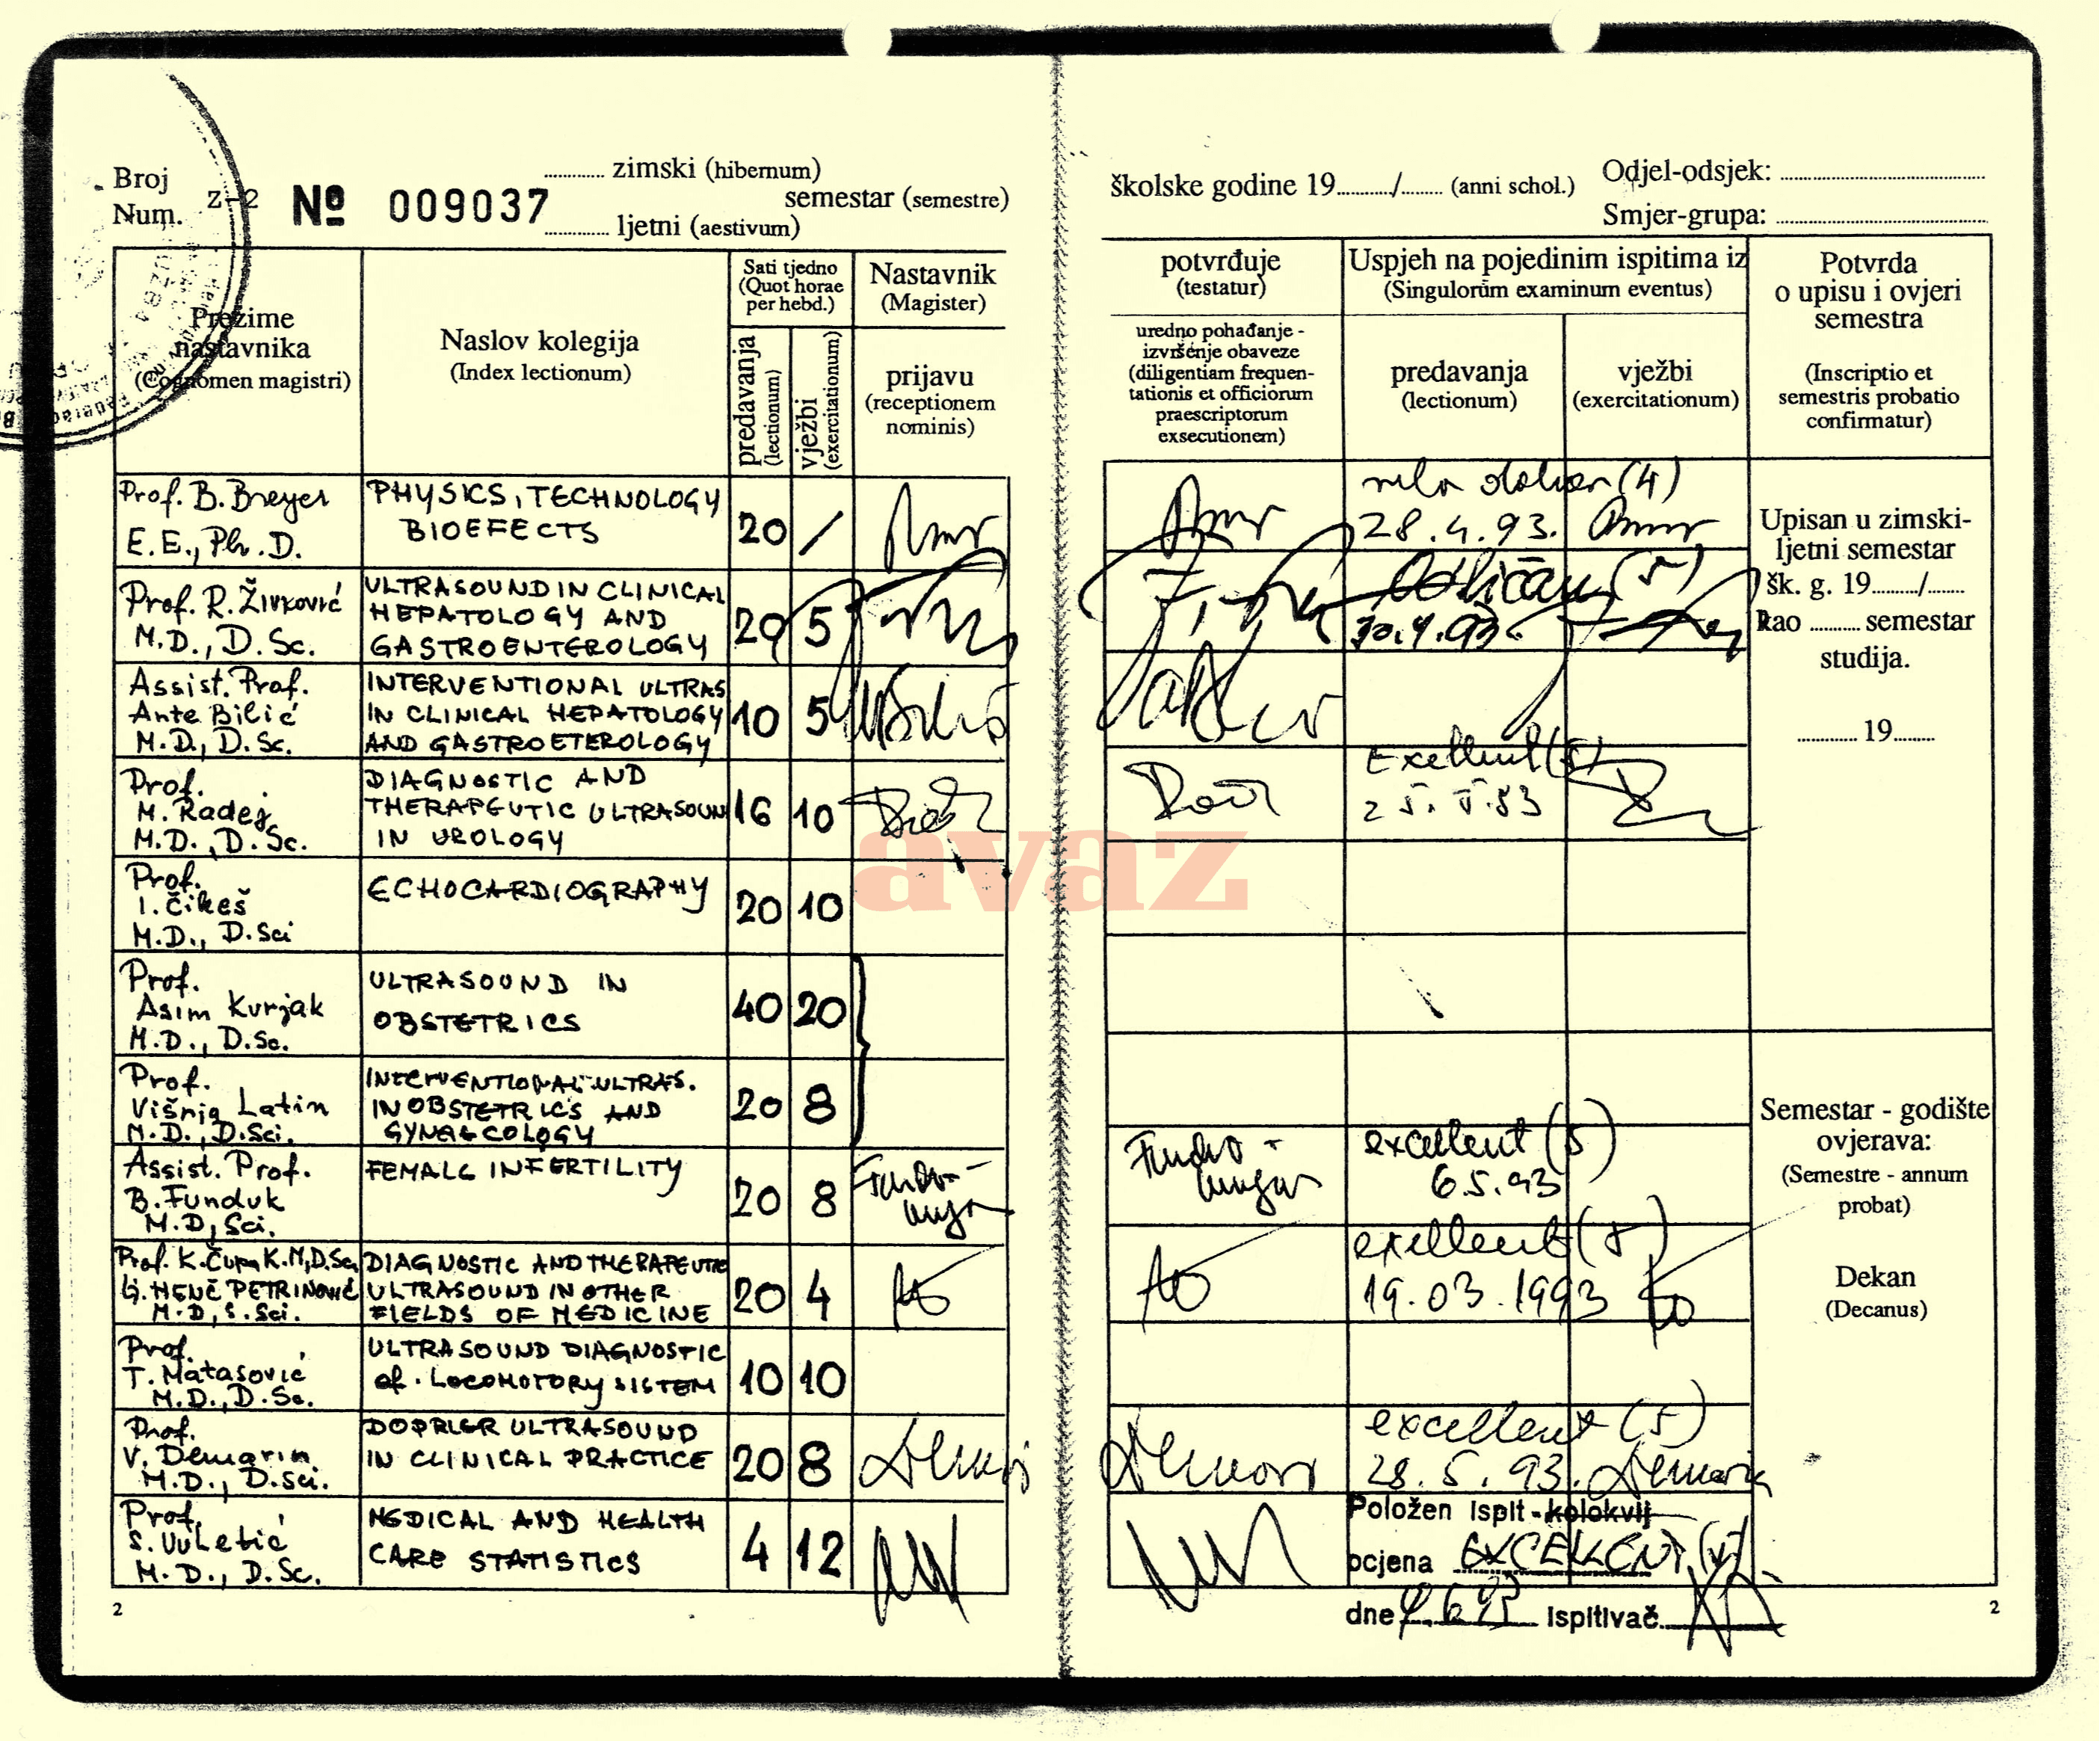 Broj
Num.
Z-2
№ 009037
............ zimski (hibernum)
semestar (semestre)
............ ljetni (aestivum)
Prezime
nastavnika
(Cognomen magistri)
Naslov kolegija
(Index lectionum)
Sati tjedno
(Quot horae
per hebd.)
predavanja
(lectionum)
vježbi
(exercitationum)
Nastavnik
(Magister)
prijavu
(receptionem
nominis)
Prof. B. Breyer
E.E., Ph.D.
PHYSICS, TECHNOLOGY
BIOEFECTS
20 /
Prof. R. Živković
M.D., D.Sc.
ULTRASOUND IN CLINICAL
HEPATOLOGY AND
GASTROENTEROLOGY
20 5
Assist. Prof.
Ante Bilić
M.D., D.Sc.
INTERVENTIONAL ULTRAS
IN CLINICAL HEPATOLOGY
AND GASTROETEROLOGY
10 5
Prof.
M. Radej
M.D., D.Sc.
DIAGNOSTIC AND
THERAPEUTIC ULTRASOUN
IN UROLOGY
16 10
Prof.
I. Čikeš
M.D., D.Sci
ECHOCARDIOGRAPHY
20 10
Prof.
Asim Kurjak
M.D., D.Sc.
ULTRASOUND IN
OBSTETRICS
40 20
Prof.
Višnja Latin
M.D., D.Sci.
INTERVENTIONAL ULTRAS.
IN OBSTETRICS AND
GYNAECOLOGY
20 8
Assist. Prof.
B. Funduk
M.D, Sci.
FEMALE INFERTILITY
20 8
Prof. K. Čupak M,D.Sc,
HENČ PETRINOVIĆ
M.D, S.Sci.
DIAGNOSTIC AND THERAPEUTIC
ULTRASOUND IN OTHER
FIELDS OF MEDICINE
20 4
Prof.
T. Matasović
M.D., D.Sc.
ULTRASOUND DIAGNOSTIC
of. LOCOMOTORY SISTEM
10 10
Prof.
V. Demarin
M.D., D.Sci.
DOPPLER ULTRASOUND
IN CLINICAL PRACTICE
20 8
Prof.
S. Vuletić
M.D., D.Sc.
MEDICAL AND HEALTH
CARE STATISTICS
4 12
2
školske godine 19.........../........ (anni schol.)
Odjel-odsjek: ..............................
Smjer-grupa: ..............................
potvrđuje
(testatur)
uredno pohađanje -
izvršenje obaveze
(diligentiam frequen-
tationis et officiorum
praescriptorum
exsecutionem)
Uspjeh na pojedinim ispitima iz
(Singulorum examinum eventus)
predavanja
(lectionum)
vježbi
(exercitationum)
Potvrda
o upisu i ovjeri
semestra
(Inscriptio et
semestris probatio
confirmatur)
(4)
28.4.93.
Odličan (5)
30.4.93.
Exellent (5)
excellent (5)
6.5.93
exellent (5)
19.03.1993
excellent (5)
28.5.93.
Položen ispit - kolokvij
ocjena EXCELLENT (5)
dne
ispitivač
Upisan u zimski-
ljetni semestar
šk. g. 19........./.......
kao .......... semestar
studija.
............ 19........
Semestar - godište
ovjerava:
(Semestre - annum
probat)
Dekan
(Decanus)
2
avaz